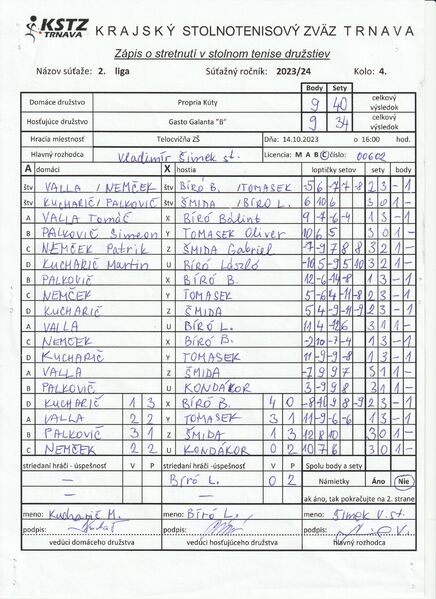 KSTZ TRNAVA KRAJSKÝ STOLNOTENISOVÝ ZVÄZ TRNAVA
Zápis o stretnutí v stolnom tenise družstiev
Názov súťaže: 2. liga Súťažný ročník: 2023/24 Kolo: 4.
Body Sety
Domáce družstvo Propria Kúty 9 40 celkový výsledok
Hosťujúce družstvo Gasto Galanta "B" 9 34 celkový výsledok
Hracia miestnosť Telocvičňa ZŠ Dňa: 14.10.2023 o 16:00 hod.
Hlavný rozhodca Vladimír Šimek st. Licencia: M A B C číslo: 00602
A domáci X hostia loptičky setov sety body
štv VALLA / NEMČEK štv BÍRÓ B. /TOMASEK -5 6 -7 -7 8 -8 2 3 - 1
štv KUCHARIČ/ PALKOVIČ štv ŠMIDA /BÍRÓ L. 6 10 6 3 0 1 -
A VALLA Tomáš X BÍRÓ Bálint 9 -7 -6 -4 1 3 - 1
B PALKOVIČ Simeon Y TOMASEK Oliver 10 6 5 3 0 1 -
C NEMČEK Patrik Z ŠMIDA Gabriel -7 -9 7 8 8 3 2 1 -
D KUCHARIČ Martin U BÍRÓ László -10 5 -9 5 10 3 2 1 -
B PALKOVIČ X BÍRÓ B. 1 3 - 1
C NEMČEK Y TOMASEK 5 -6 4 -11 -8 2 3 - 1
D KUCHARIČ Z ŠMIDA 5 4 -9 -11 -9 2 3 - 1
A VALLA U BÍRÓ L. 3 1 -
C NEMČEK X BÍRÓ B. -2 10 -7 -4 1 3 - 1
D KUCHARIČ Y TOMASEK -11 -9 -9 1 3 - 1
A VALLA Z ŠMIDA -7 9 9 7 3 1 1 -
B PALKOVIČ U KONDÁKOR 3 -9 9 8 3 1 1 -
D KUCHARIČ 1 3 X BÍRÓ B. 4 0 -8 10 9 -8 -9 2 3 - 1
A VALLA 2 2 Y TOMASEK 3 1 11 -9 -6 -6 1 3 - 1
B PALKOVIČ 3 1 Z ŠMIDA 1 3 12 8 10 3 0 1 -
C NEMČEK 2 2 U KONDÁKOR 0 2 10 7 6 3 0 1 -
striedaní hráči - úspešnosť V P striedaní hráči - úspešnosť V P Spolu body a sety
— BÍRÓ L. 0 2 Námietky Áno Nie
— — ak áno, tak pokračujte na 2. strane
meno: Kucharič M. meno: BÍRÓ L. meno: Šimek V. st.
podpis: podpis: podpis:
vedúci domáceho družstva vedúci hosťujúceho družstva hlavný rozhodca